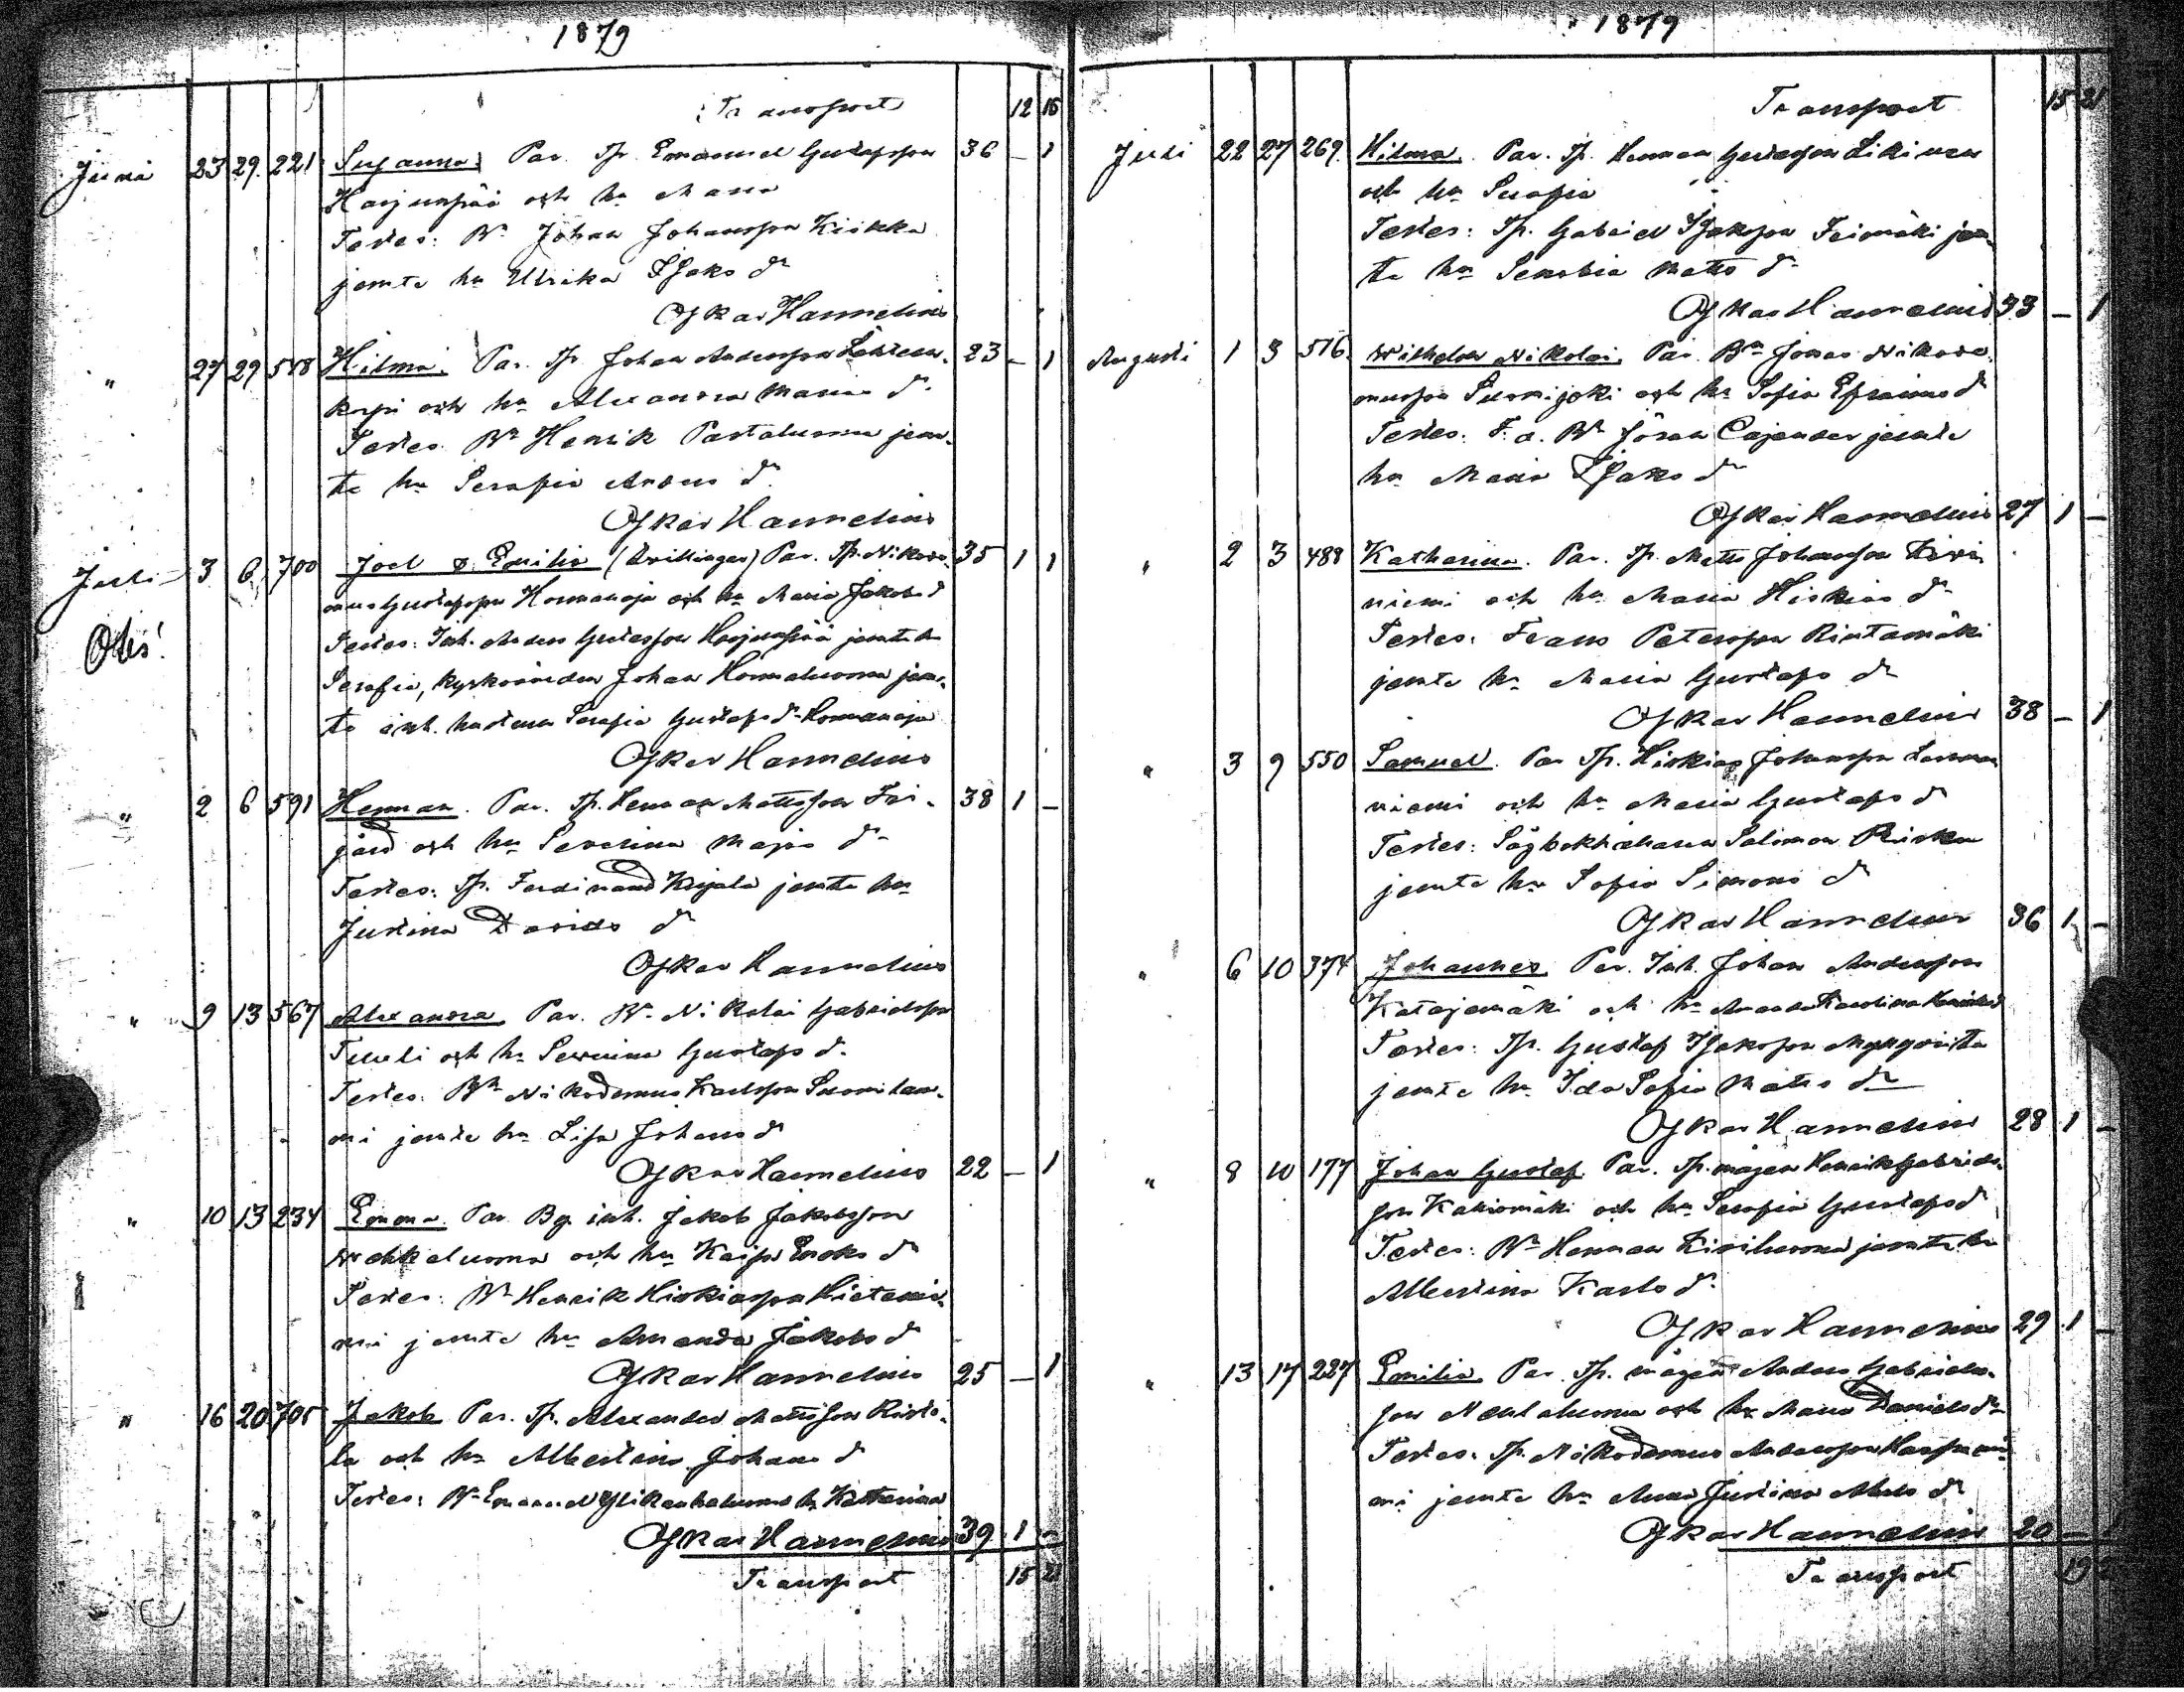 1879
Transport 12 16
Juni 23 29. 221 Susanna. Par. Tp. Emanuel Gustafsson 36 – 1
Harjunpää och hu Maria
Testes: Bn Johan Johansson Kiikka
jemte hu Ulrika Isaks dr
Oskar Hannelius
" 27 29 548 Hilma. Par. Tp. Johan Andersson 23 – 1
och hu Alexandra Marias dr
Testes. Bn Henrik Partaluoma jem-
te hu Serafia Anders dr
Oskar Hannelius
Juli 3 6 700 Joel o. Emilia (tvillingar) Par. Tp. Nikode- 35 1 1
mus Gustafsson Hommanoja och hu Maria Jakobs d
Obs! Testes: Inh. Anders Gustafsson Harjunpää jemte hu
Serafia, kyrkovärden Johan Hommaluoma jem-
te inh. hustrun Serafia Gustafs dr Hommanoja
Oskar Hannelius
" 2 6 591 Herman. Par. Tp. Herman Mattsson Foi- 38 1 –
järd och hu Severina Majas dr
Testes: Tp. Ferdinand Krijala jemte hu
Justina Davids dr
Oskar Hannelius
" 9 13 567 Alexandra. Par. Bn Nikolai Gabrielsson
Tuuli och hu Serviina Gustafs d.
Testes: Bn Nikodemus Karlsson Suomilam-
mi jemte hu Lisa Johans dr
Oskar Hannelius 22 – 1
" 10 13 234 Emma. Par. Bg. inh. Jakob Jakobsson
Wehkaluoma och hu Kaisa Enoks dr
Testes: Bn Henrik Hiskiasson Hietanie-
mi jemte hu Amanda Jakobs dr
Oskar Hannelius 25 – 1
" 16 20 705 Jakob. Par. Tp. Alexander Mattsson Risto-
la och hu Albertina Johans dr
Testes: Bn Emanuel Ylikauhaluoma hu Katharina
Oskar Hannelius 39 1 –
Transport 15 21
1879
Transport 15 21
Juli 22 27 269. Hilma. Par. Tp. Herman Gustafsson Likiman
och hu Serafia
Testes: Tp. Gabriel Isaksson Feimäki jem-
te hu Senobia Matts dr
Oskar Hannelius 33 – 1
Augusti 1 3 516. Wilhelm Nikolai. Par. Bn Jonas Nikode-
musson Suomijoki och hu Sofia Efraims dr
Testes: F. d. Bn Jöran Cajander jemte
hu Maria Isaks dr
Oskar Hannelius 27 1 –
" 2 3 488 Katharina. Par. Tp. Matts Johansson Kivi
niemi och hu Maria Hiskias dr
Testes: Frans Petersson Rintamäki
jemte hu Maria Gustafs dr
Oskar Hannelius 38 – 1
" 3 9 550 Samuel. Par Tp. Hiskias Johansson
niemi och hu Maria Gustafs dr
Testes: Sågbokhållaren Salomon Risku
jemte hu Sofia Simons dr
Oskar Hannelius 36 1 –
" 6 10 374 Johannes. Par. Inh. Johan Andersson
Katajamäki och hu Amanda Karolina Henriksd
Testes: Tp. Gustaf Isaksson Myllyniitta
jemte hu Ida Sofia Matts dr
Oskar Hannelius 28 1 –
" 8 10 177 Johan Gustaf. Par. Tp. mågen Henrik Gabriels-
son Kakiomäki och hu Serafia Gustafs dr
Testes: Bn Herman Kiviluoma jemte hu
Albertina Karls dr
Oskar Hannelius 29 1 –
" 13 17 227 Emilia. Par. Tp. mågen Anders Gabriels-
son och hu Maria Daniels dr
Testes. Tp. Nikodemus Andersson Haapanie-
mi jemte hu Anna Justina Abels dr
Oskar Hannelius 20 –
Transport 19